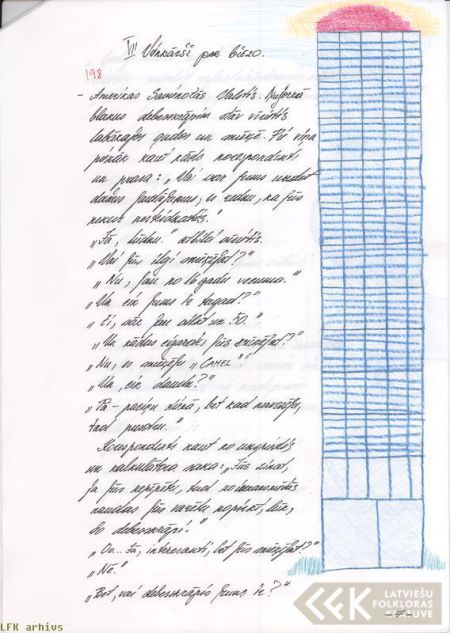 VII Vienkārši par biezo.
198
- Amerikas Savienotās Valstis. Ņujorkā
blakus debesskrāpim stāv vīrietis
labākajos gados un smēķē. Pie viņa
pienāk kāds korespondents
un prasa: „Vai var jums uzdot
dažus jautājumus, es redzu, ka jūs
nekur nesteidzaties."
„Jā, lūdzu." atbild vīrietis.
„Vai jūs ilgi smēķējat?"
„Nu, jau no 16 gadu vecuma."
„Un cik jums ir tagad?"
„Ei, drīz būs 50."
„Un kādas cigaretes jūs smēķējat?"
„Nu, es smēķēju „CAMEL".
„Un, cik daudz?"
„Pa paciņu dienā, bet kad
tad pusotru."
Korespondents kaut ko
un kalkulatora saka: „Jūs zinat,
ja jūs nepīpētu, tad
naudas jūs varētu nopirkt, lūk,
šo debesskrāpi."
„Oo... Jā, interesanti, bet jūs smēķējat?"
„Nē."
„Bet, vai debesskrāpis jums ir?"
LATVIEŠU
FOLKLORAS
KRĀTUVE
LFK arhīvs